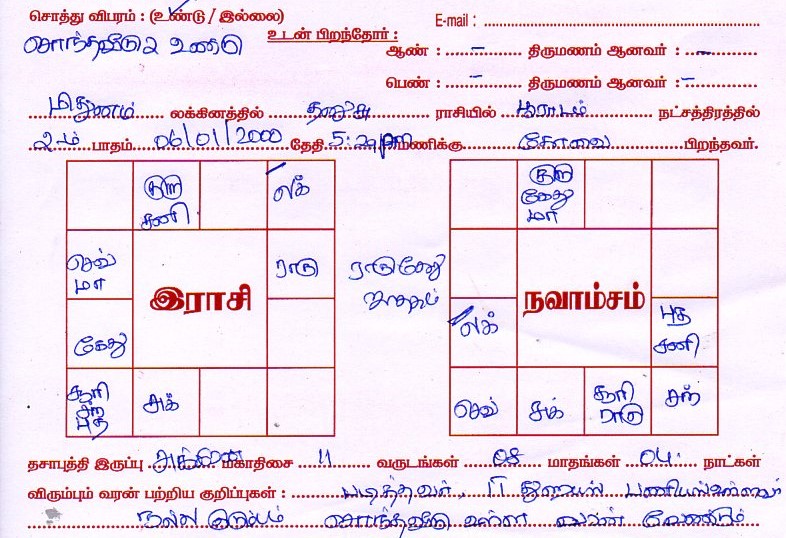 சொத்து விபரம் : (உண்டு / இல்லை)
E-mail :
சொந்தவீடு 2 உண்டு
உடன் பிறந்தோர் :
ஆண் : – திருமணம் ஆனவர் : –
பெண் : – திருமணம் ஆனவர் : –
மிதுனம் லக்கினத்தில் தனுசு ராசியில் பூராடம் நட்சத்திரத்தில்
2-ம் பாதம் 06/01/2000 தேதி 5:20 pm மணிக்கு கோவை பிறந்தவர்.
குரு சனி
லக்
செவ் மா
ராகு
இராசி
கேது
சூரி சந் புத
சுக்
ராகு கேது
குரு கேது மா
நவாம்சம்
லக்
புத சனி
செவ்
சுக்
சூரி ராகு
சந்
தசாபுத்தி இருப்பு சுக்கிரன் மகாதிசை 11 வருடங்கள் 08 மாதங்கள் 04 நாட்கள்
விரும்பும் வரன் பற்றிய குறிப்புகள் : படித்தவர், IT பணியில் உள்ளவர்
நல்ல குடும்பம் சொந்தவீடு உள்ள வரன் வேண்டும்